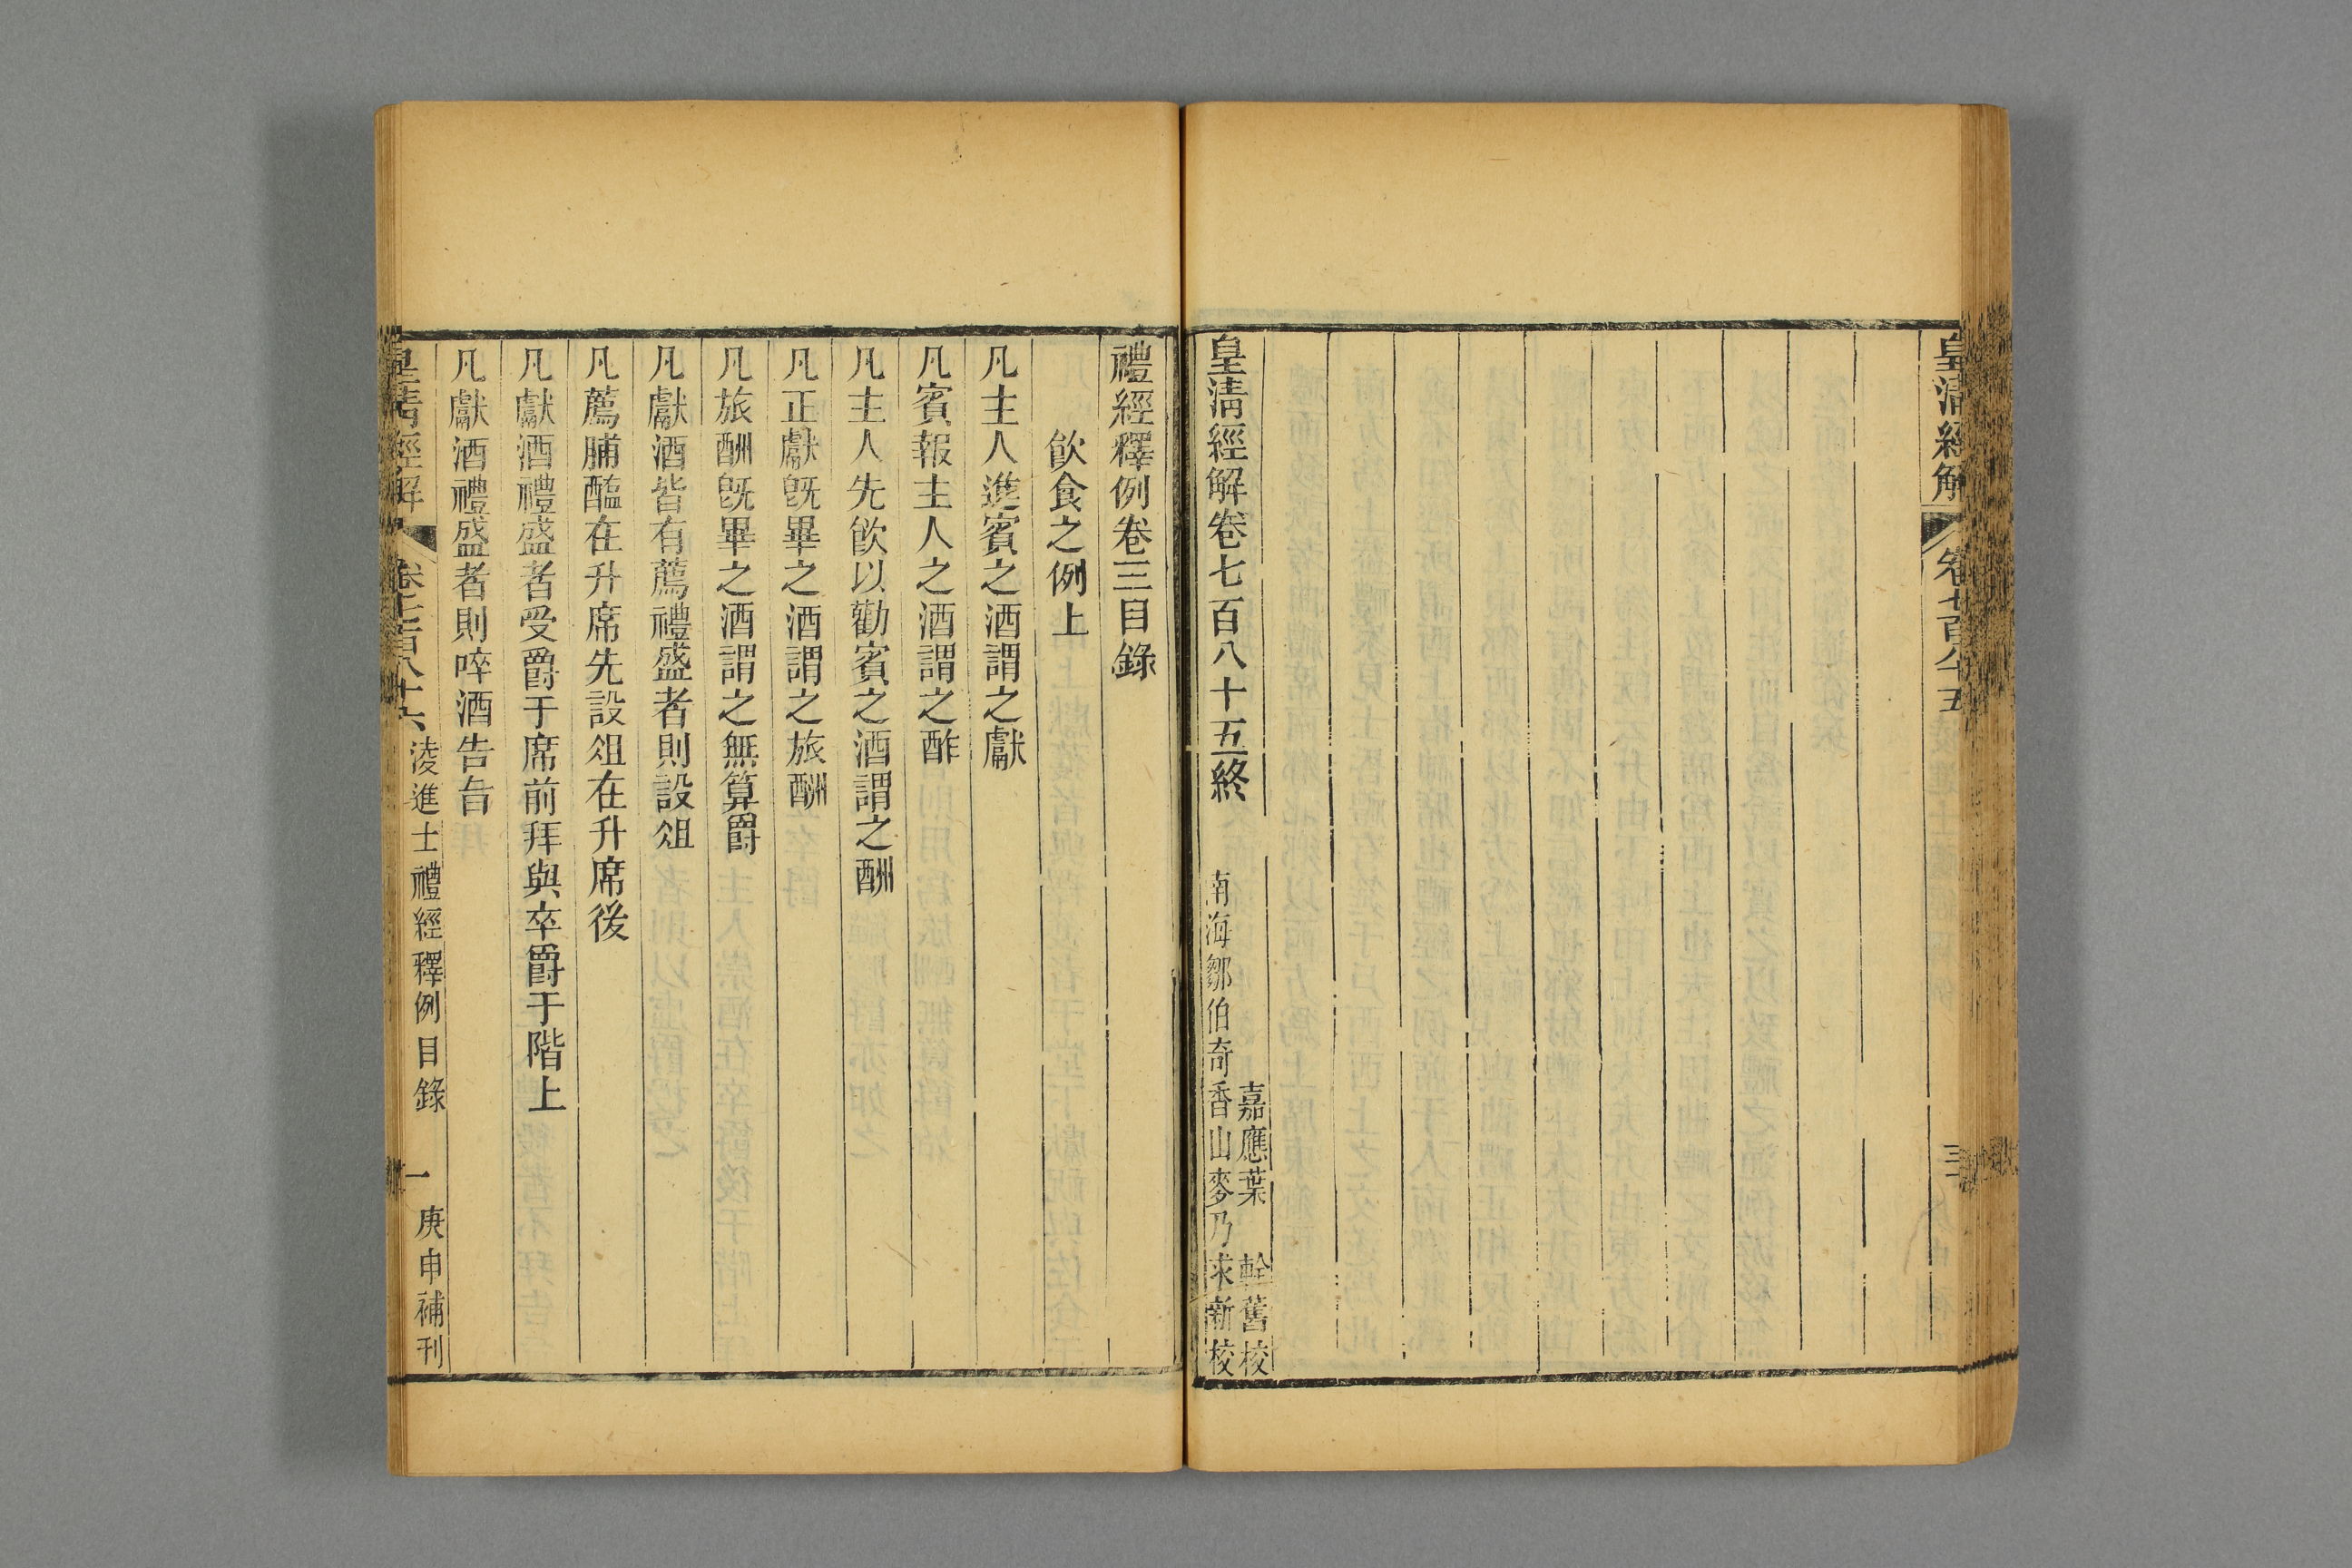 皇清經解
卷七百八十五
三
皇清經解卷七百八十五終
嘉應葉 輇舊校
南海鄒伯奇香山麥乃求新校
禮經釋例卷三目錄
飮食之例上
凡主人進賓之酒謂之獻
凡賓報主人之酒謂之酢
凡主人先飮以勸賓之酒謂之酬
凡正獻旣畢之酒謂之旅酬
凡旅酬旣畢之酒謂之無算爵
凡獻酒皆有薦禮盛者則設俎
凡薦脯醢在升席先設俎在升席後
凡獻酒禮盛者受爵于席前拜與卒爵于階上
凡獻酒禮盛者則啐酒告旨
皇清經解
卷七百八十六
淩進士禮經釋例目錄
一
庚申補刊